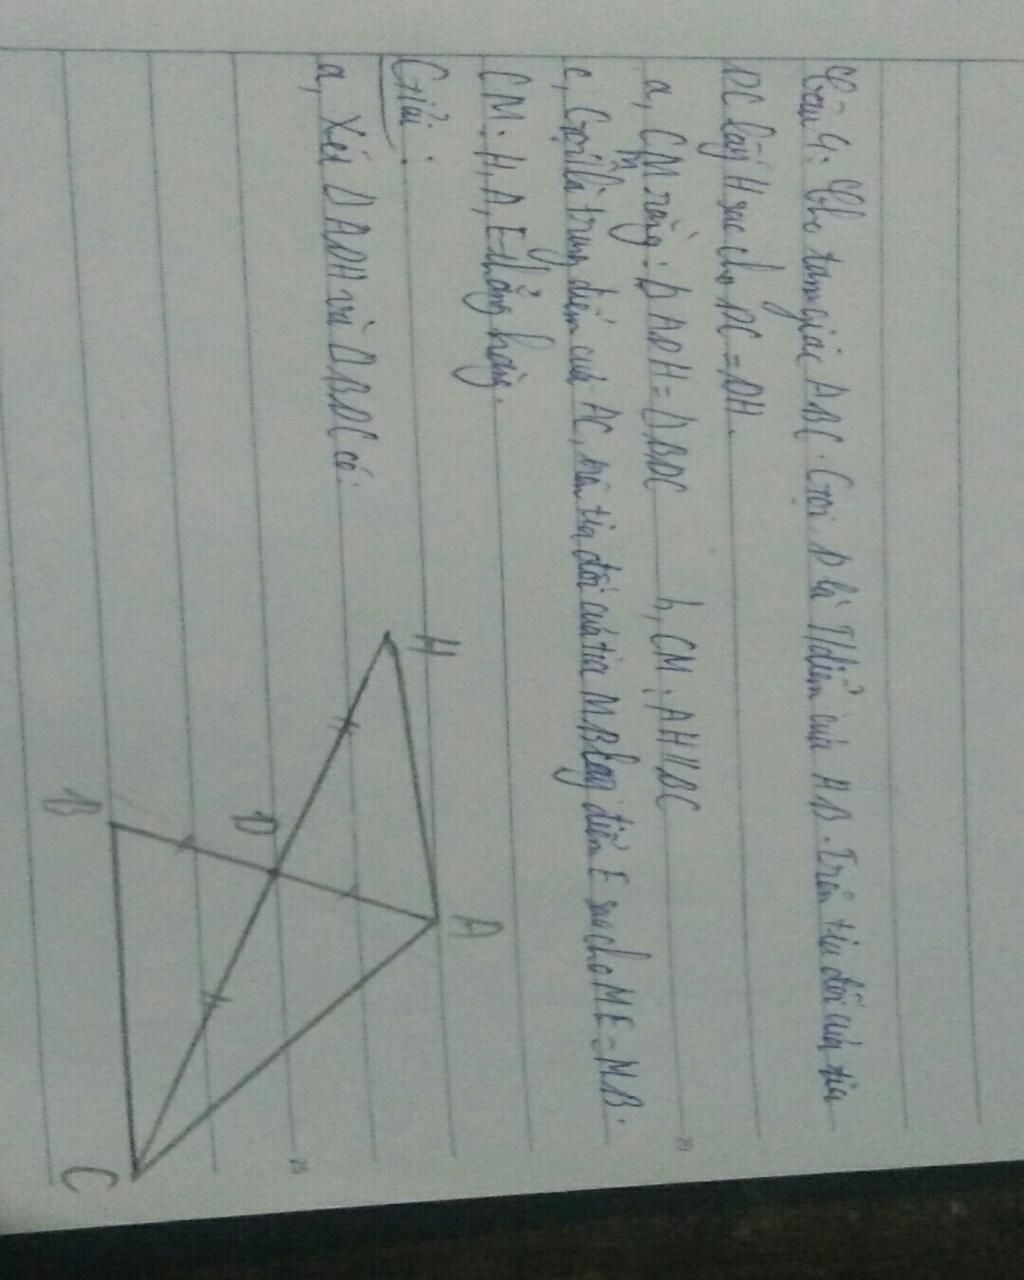 Câu 4: Cho tam giác ABC. Gọi D là T/điểm của AB. Trên tia đối của tia
DC lấy H sao cho DC = DH.
a, CM rằng: Δ ADH = Δ BDC b, CM: AH // BC
c, Gọi M là trung điểm của AC, trên tia đối của tia MB lấy điểm E sao cho ME = MB.
CM: H, A, E thẳng hàng.
Giải:
a, Xét Δ ADH và Δ BDC có:
H
A
D
B
C
20
25